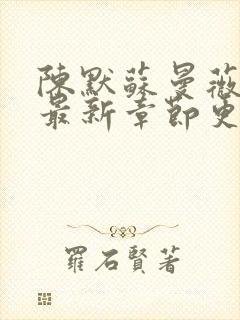 陳默蘇曼薇
最新章節更
羅石賢著